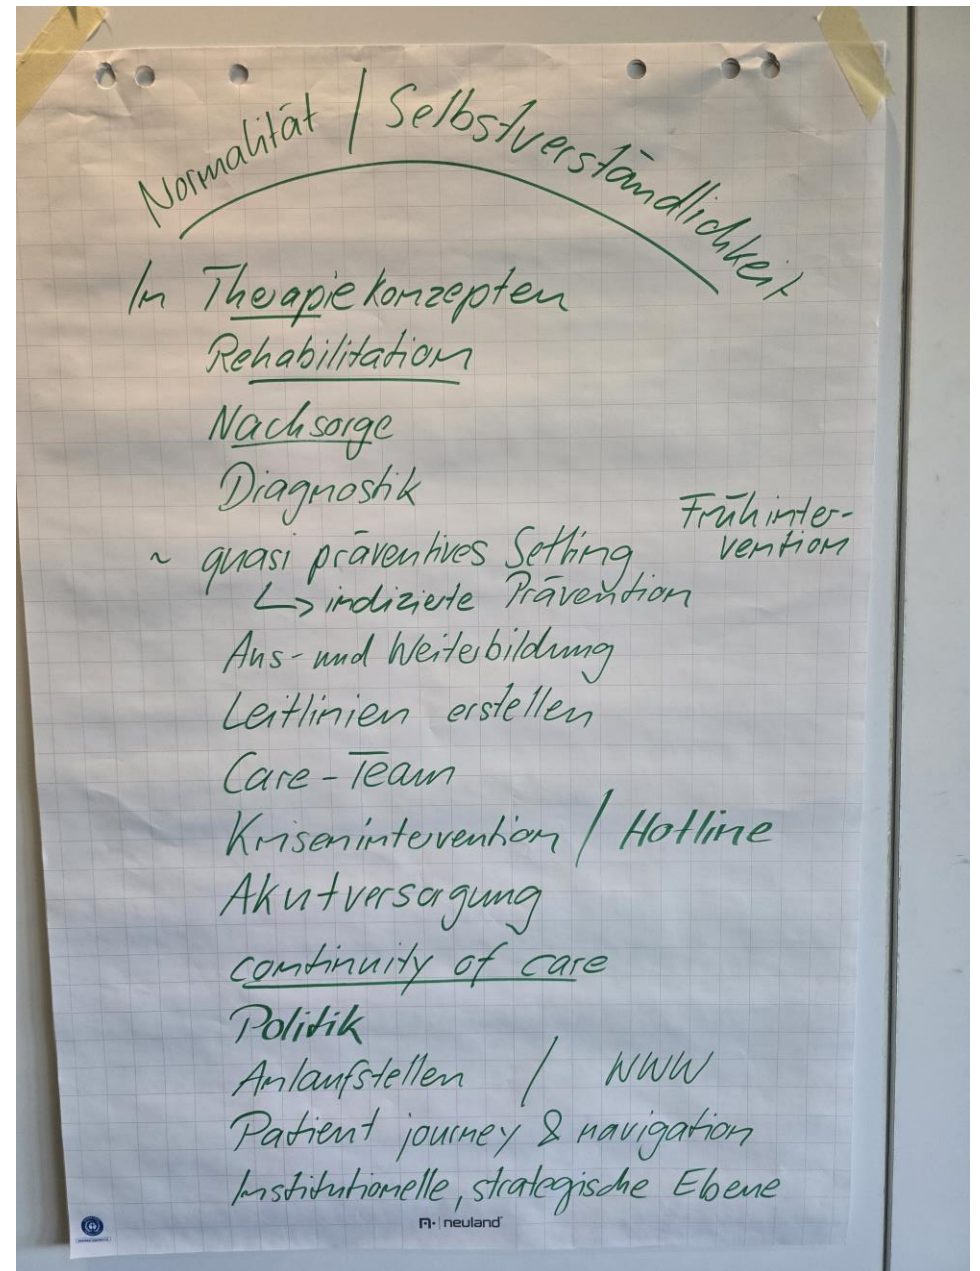 Normalität / Selbstverständlichkeit
In Therapiekonzepten
Rehabilitation
Nachsorge
Diagnostik
Frühinter-
vention
~ quasi präventives Setting
↳ indizierte Prävention
Aus- und Weiterbildung
Leitlinien erstellen
Care-Team
Krisenintervention / Hotline
Akutversorgung
continuity of care
Politik
Anlaufstellen / WWW
Patient journey & navigation
Institutionelle, strategische Ebene
neuland